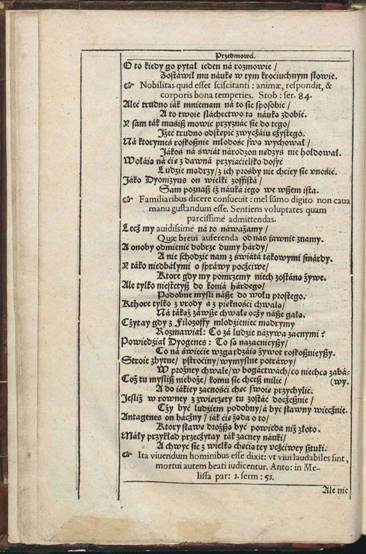 Przedmowá.
O to kiedy go pytał ieden ná rozmowie /
Zostáwił mu náukę w tym krociuchnym słowie.
☞ Nobilitas quid esset sciscitanti: animæ, respondit, &
corporis bona temperies. Stob: ser. 84.
Aleć trudno iák mniemam ná to sie sposobić /
A to twoie sláchectwo tá náuka zdobić.
Y sam ták musisz mowić przyznáć sie do tego /
Iżeć trudno odstąpić zwyczáiu częstego.
Ná ktorymeś roskosznie młodość swą wychował /
Iákoś ná świát národzon nędzyś nie hołdował.
Wołáią ná cię z dawná przyiacielsko dosyć
Ludzie mądrzy / z ich prośby nie chciey sie wnosić.
Iáko Dyonizyus on wielki zoffistá
Sam poznasz iż náuká iego we wszem istá.
☞ Familiaribus dicere consueuit: mel sũmo digito non caua
manu gustandum esse. Sentiens voluptates quam
parcissimè admittendas.
Lecż my auidissimè ná to náważamy /
Quæ breui auferenda od nas sáwnie znamy.
A onoby odmienić dobrze dumy hárdy /
A nie schodzić nam z świátá tákowymi smárdy.
Y táko niedbáłymi o spráwy poczciwe /
Ktore gdy my pomrzemy niech zostáną żywe.
Ale tylko niestetyß do koniá hárdego /
Podobne myśli násze do wołu prostego.
Kthore tylko z vrody á z piękności chwalą /
Ná tákąż záwsze chwałę oczy násze gáłą.
Czytay gdy z Filozoffy młodzieniec mądrymy
Rozmawiał: Co zá ludzie názywa zacnymi?
Powiedział Dyogenes: To są nazacnieyszy /
Co ná świecie wzgárdzáią żywot roskosznieyszy.
Stroie zbytne / pstrociny / wymyslne potráwy /
W prożney chwale / w bogáctwách / co niechcą zabá:
Coż tu myslisz nieboże / komu sie chcesz milić / (wy.
A do iákiey zacności chęć swoię przychylić.
Iesliż w rowney z zwierzęty tu zostáć docześnie /
Czy być ludziem podobny / á być sławny wiecznie.
Antágenes on báczny / iák cię żáda o to /
Ktory sławę drożsżą być powieda niż złoto.
Máły przykład przeczytay ták zacney náuki /
A chwyć sie z wielką chęcią tey vczciwey sztuki.
☞ Ita viuendum hominibus esse dixit: vt viui laudabiles sint,
mortui autem beati iudicentur. Anto: in Me-
lissa par: 1. serm: 51.
Ale nie